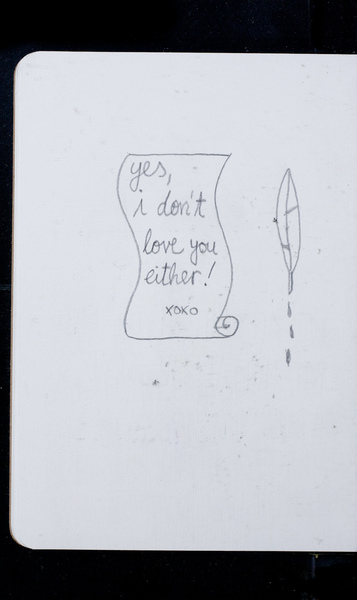 yes,
i don't
love you
either!
xoxo